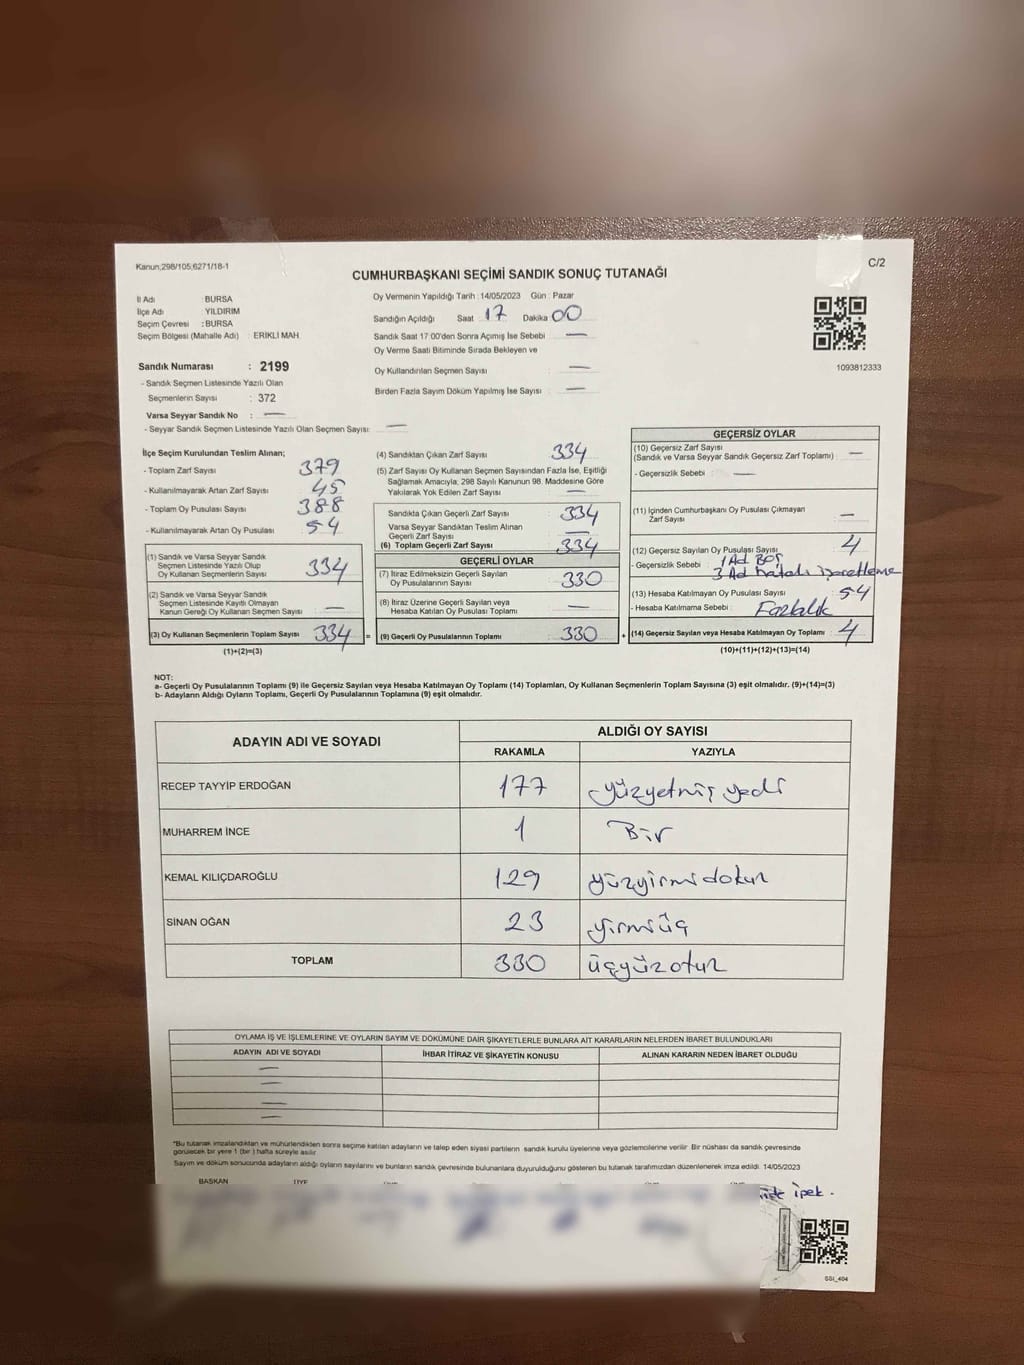 Kanun;298/105;6271/18-1
C/2
CUMHURBAŞKANI SEÇİMİ SANDIK SONUÇ TUTANAĞI
İl Adı : BURSA
İlçe Adı : YILDIRIM
Seçim Çevresi : BURSA
Seçim Bölgesi (Mahalle Adı) : ERİKLİ MAH.
Sandık Numarası : 2199
- Sandık Seçmen Listesinde Yazılı Olan
Seçmenlerin Sayısı : 372
Varsa Seyyar Sandık No : —
- Seyyar Sandık Seçmen Listesinde Yazılı Olan Seçmen Sayısı: —
Oy Vermenin Yapıldığı Tarih : 14/05/2023 Gün : Pazar
Sandığın Açıldığı Saat : 17 Dakika : 00
Sandık Saat 17:00'den Sonra Açımış İse Sebebi : —
Oy Verme Saati Bitiminde Sırada Bekleyen ve
Oy Kullandırılan Seçmen Sayısı : —
Birden Fazla Sayım Döküm Yapılmış İse Sayısı : —
1093812333
İlçe Seçim Kurulundan Teslim Alınan;
- Toplam Zarf Sayısı : 379
- Kullanılmayarak Artan Zarf Sayısı : 45
- Toplam Oy Pusulası Sayısı : 388
- Kullanılmayarak Artan Oy Pusulası : 54
(1) Sandık ve Varsa Seyyar Sandık
Seçmen Listesinde Yazılı Olup
Oy Kullanan Seçmenlerin Sayısı : 334
(2) Sandık ve Varsa Seyyar Sandık
Seçmen Listesinde Kayıtlı Olmayan
Kanun Gereği Oy Kullanan Seçmen Sayısı : —
(3) Oy Kullanan Seçmenlerin Toplam Sayısı : 334 =
(1)+(2)=(3)
(4) Sandıktan Çıkan Zarf Sayısı : 334
(5) Zarf Sayısı Oy Kullanan Seçmen Sayısından Fazla İse, Eşitliği
Sağlamak Amacıyla, 298 Sayılı Kanunun 98. Maddesine Göre
Yakılarak Yok Edilen Zarf Sayısı : —
Sandıkta Çıkan Geçerli Zarf Sayısı : 334
Varsa Seyyar Sandıktan Teslim Alınan
Geçerli Zarf Sayısı : —
(6) Toplam Geçerli Zarf Sayısı : 334
GEÇERLİ OYLAR
(7) İtiraz Edilmeksizin Geçerli Sayılan
Oy Pusulalarının Sayısı : 330
(8) İtiraz Üzerine Geçerli Sayılan veya
Hesaba Katılan Oy Pusulası Toplamı : —
(9) Geçerli Oy Pusulalarının Toplamı : 330 +
GEÇERSİZ OYLAR
(10) Geçersiz Zarf Sayısı
(Sandık ve Varsa Seyyar Sandık Geçersiz Zarf Toplamı) : —
- Geçersizlik Sebebi : —
(11) İçinden Cumhurbaşkanı Oy Pusulası Çıkmayan
Zarf Sayısı : —
(12) Geçersiz Sayılan Oy Pusulası Sayısı : 4
- Geçersizlik Sebebi : 1 Ad Boş
3 Ad hatalı işaretleme
(13) Hesaba Katılmayan Oy Pusulası Sayısı : 54
- Hesaba Katılmama Sebebi : Fazlalık
(14) Geçersiz Sayılan veya Hesaba Katılmayan Oy Toplamı : 4
(10)+(11)+(12)+(13)=(14)
NOT:
a- Geçerli Oy Pusulalarının Toplamı (9) ile Geçersiz Sayılan veya Hesaba Katılmayan Oy Toplamı (14) Toplamları, Oy Kullanan Seçmenlerin Toplam Sayısına (3) eşit olmalıdır. (9)+(14)=(3)
b- Adayların Aldığı Oyların Toplamı, Geçerli Oy Pusulalarının Toplamına (9) eşit olmalıdır.
ADAYIN ADI VE SOYADI ALDIĞI OY SAYISI
RAKAMLA YAZIYLA
RECEP TAYYİP ERDOĞAN 177 yüzyetmiş yedi
MUHARREM İNCE 1 Bir
KEMAL KILIÇDAROĞLU 129 yüzyirmidokuz
SİNAN OĞAN 23 yirmiüç
TOPLAM 330 üçyüzotuz
OYLAMA İŞ VE İŞLEMLERİNE VE OYLARIN SAYIM VE DÖKÜMÜNE DAİR ŞİKAYETLERLE BUNLARA AİT KARARLARIN NELERDEN İBARET BULUNDUKLARI
ADAYIN ADI VE SOYADI İHBAR İTİRAZ VE ŞİKAYETİN KONUSU ALINAN KARARIN NEDEN İBARET OLDUĞU
—
—
—
—
*Bu tutanak imzalandıktan ve mühürlendikten sonra seçime katılan adayların ve talep eden siyasi partilerin sandık kurulu üyelerine veya gözlemcilerine verilir. Bir nüshası da sandık çevresinde
görülecek bir yere 1 (bir ) hafta süreyle asılır.
Sayım ve döküm sonucunda adayların aldığı oyların sayılarını ve bunların sandık çevresinde bulunanlara duyurulduğunu gösteren bu tutanak tarafımızdan düzenlenerek imza edildi. 14/05/2023
BAŞKAN ÜYE
ipek.
SSI_404